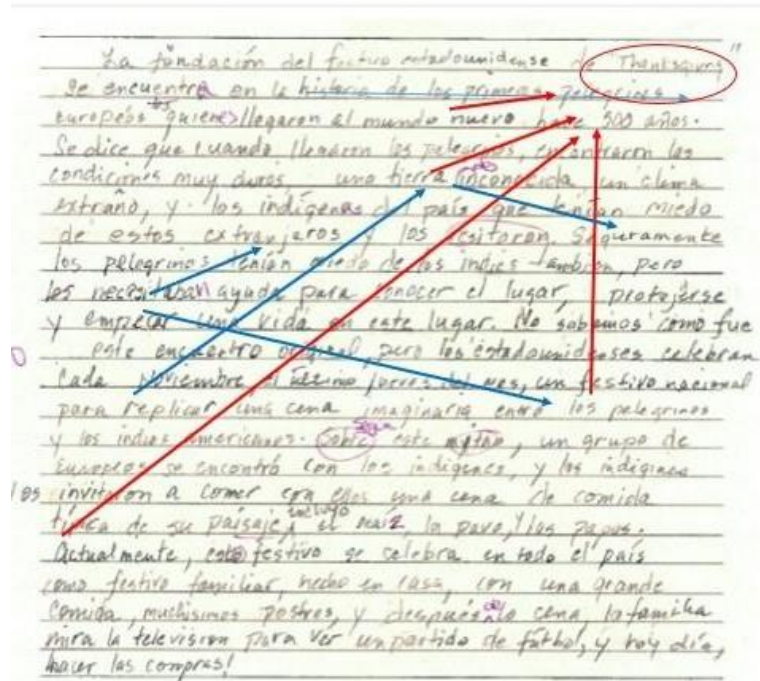 La fundación del festivo estadounidense de Thanksgiving "
se encuentra en la historia de los primeros pelegrinos
europeos quienes llegaron al mundo nuevo hace 300 años.
Se dice que cuando llegaron los pelegrinos, encontraron las
condiciones muy duras, una tierra inconocida, un clima
extraño, y los indígenas del país que tenían miedo
de estos extranjeros y los Seguramente
los pelegrinos tenían miedo de los indios tambien, pero
los necesitaban ayuda para conocer el lugar, protejerse
y empezar una vida en este lugar. No sabemos como fue
este encuentro original, pero los estadounidenses celebran
cada noviembre, el último jueves del mes, un festivo nacional
para replicar una cena imaginaria entre los pelegrinos
y los indios americanos. este , un grupo de
europeos se encontró con los indígenas, y los indígenas
los invitaron a comer con ellos una cena de comida
típica de su paisaje, incluyo el maíz, la pavo, y las papas.
Actualmente, este festivo se celebra en todo el país
como festivo familiar, hecho en casa, con una grande
comida, muchísimos postres, y después de la cena, la familia
mira la television para ver un partido de fútbol, y hoy día,
hacer las compras!